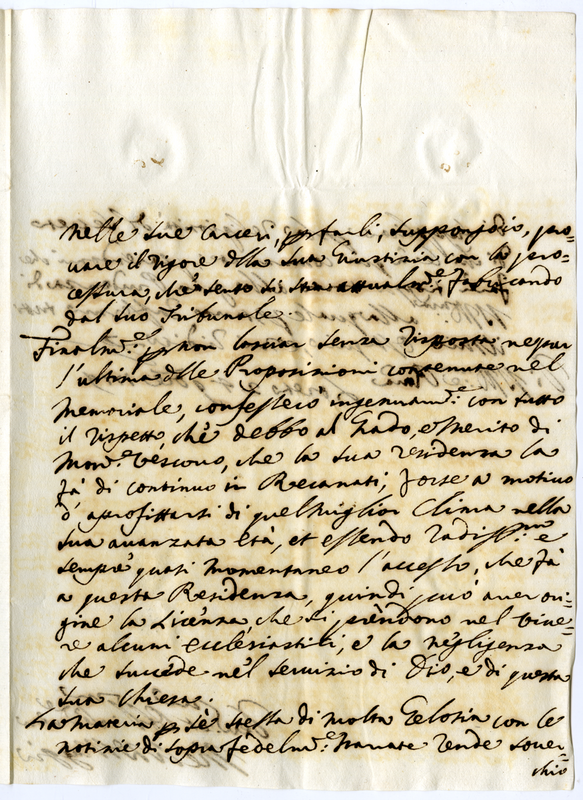 nelle sue carceri, p farli, supponendosi, pro=
uare il rigore della sua Giustizia con la pro=
cessura, che sento si stia attualm.e fabricando
dal suo Tribunale.
Finalm.e p non lasciar senza risposta neppur
l'ultima delle Proposizioni contenute nel
Memoriale, confessero ingenuam.e con tutto
il rispetto, che debbo al Grado, e Merito di
Mon.e Vescovo, che la sua residenza la
fà di continuo in Recanati; forse a motivo
d'approfittarsi di quel miglior Clima nella
sua auanzata Età, et essendo radiss.mo e
sempre quasi momentaneo l'accesso, che fà
a questa Residenza, quindi può auer ori=
gine la Licenza che si prendono nel viue=
re alcuni ecclesiastici, e la negligenza
che succede nel servizio di Dio, e di questa
sua Chiesa.
La materia p sè stessa di molta Gelosia con le
notizie di sopra fedelm.e narrate rende sover=
chio